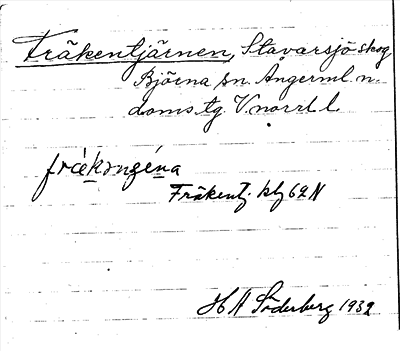 Fräkentjärnen, Stavarsjö skog
Björna sn. Ångerml. n.
doms.tg. V.norrl. l.
frækəngéna
Fräkentj. kbl 62 N
H A Söderberg 1932